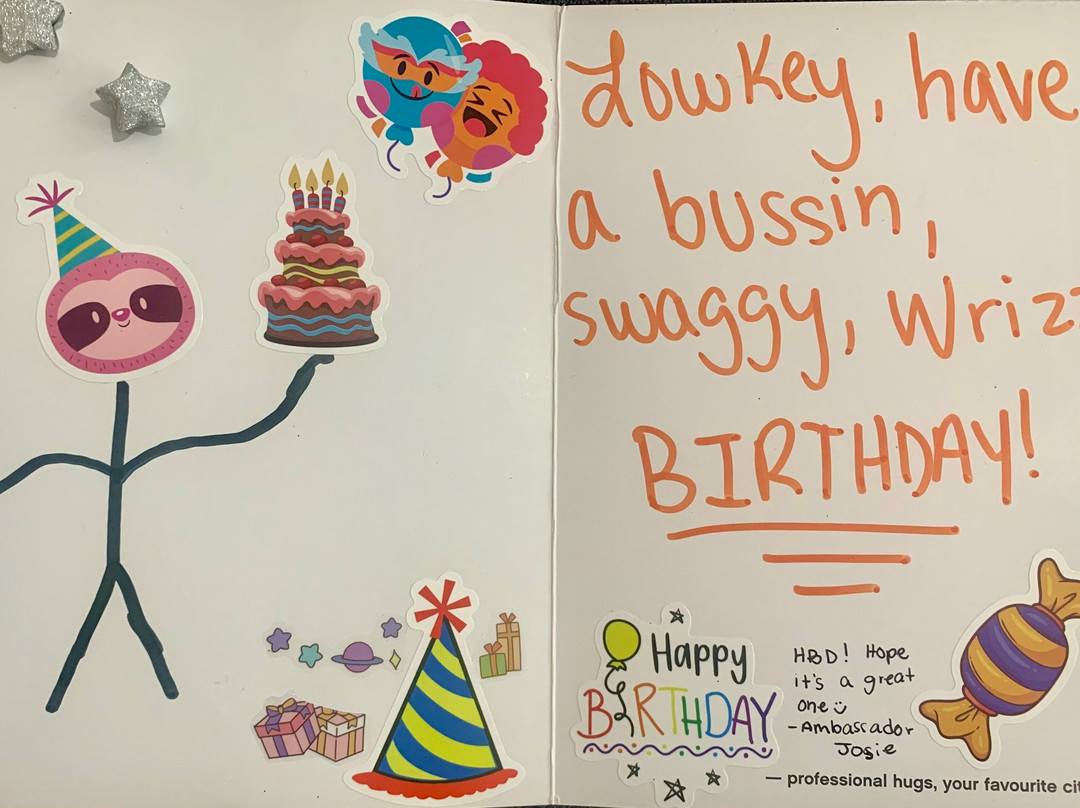 Lowkey, have
a bussin,
swaggy, Wriz
BIRTHDAY!
Happy
BIRTHDAY
HBD! Hope
it's a great
one
-Ambassador
Josie
— professional hugs, your favourite